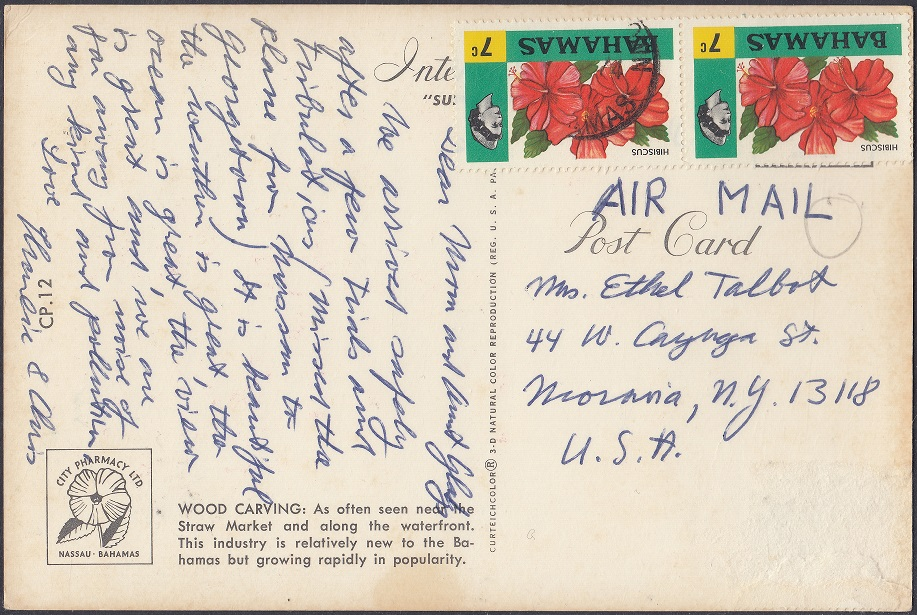 Inte
"SUN
BAHAMAS
7c
HIBISCUS
BAHAMAS
7c
HIBISCUS
MAS
AIR MAIL
Post Card
Mrs. Ethel Talbot
44 W. Cayuga St.
Moravia, N.Y. 13118
U.S.A.
Dear Mom and Aunt Glady
We arrived safely
after a few trials and
tribulations (missed the
plane from Nassau to
Georgetown) It is beautiful
the weather is great the
ocean is great the view
is great and we are
far away from noise of
any kind and pollution
Love Charlie & Chris
CP.12
CURTEICHCOLOR® 3-D NATURAL COLOR REPRODUCTION (REG. U. S. A. PA
CITY PHARMACY LTD
NASSAU · BAHAMAS
WOOD CARVING: As often seen near the
Straw Market and along the waterfront.
This industry is relatively new to the Ba-
hamas but growing rapidly in popularity.